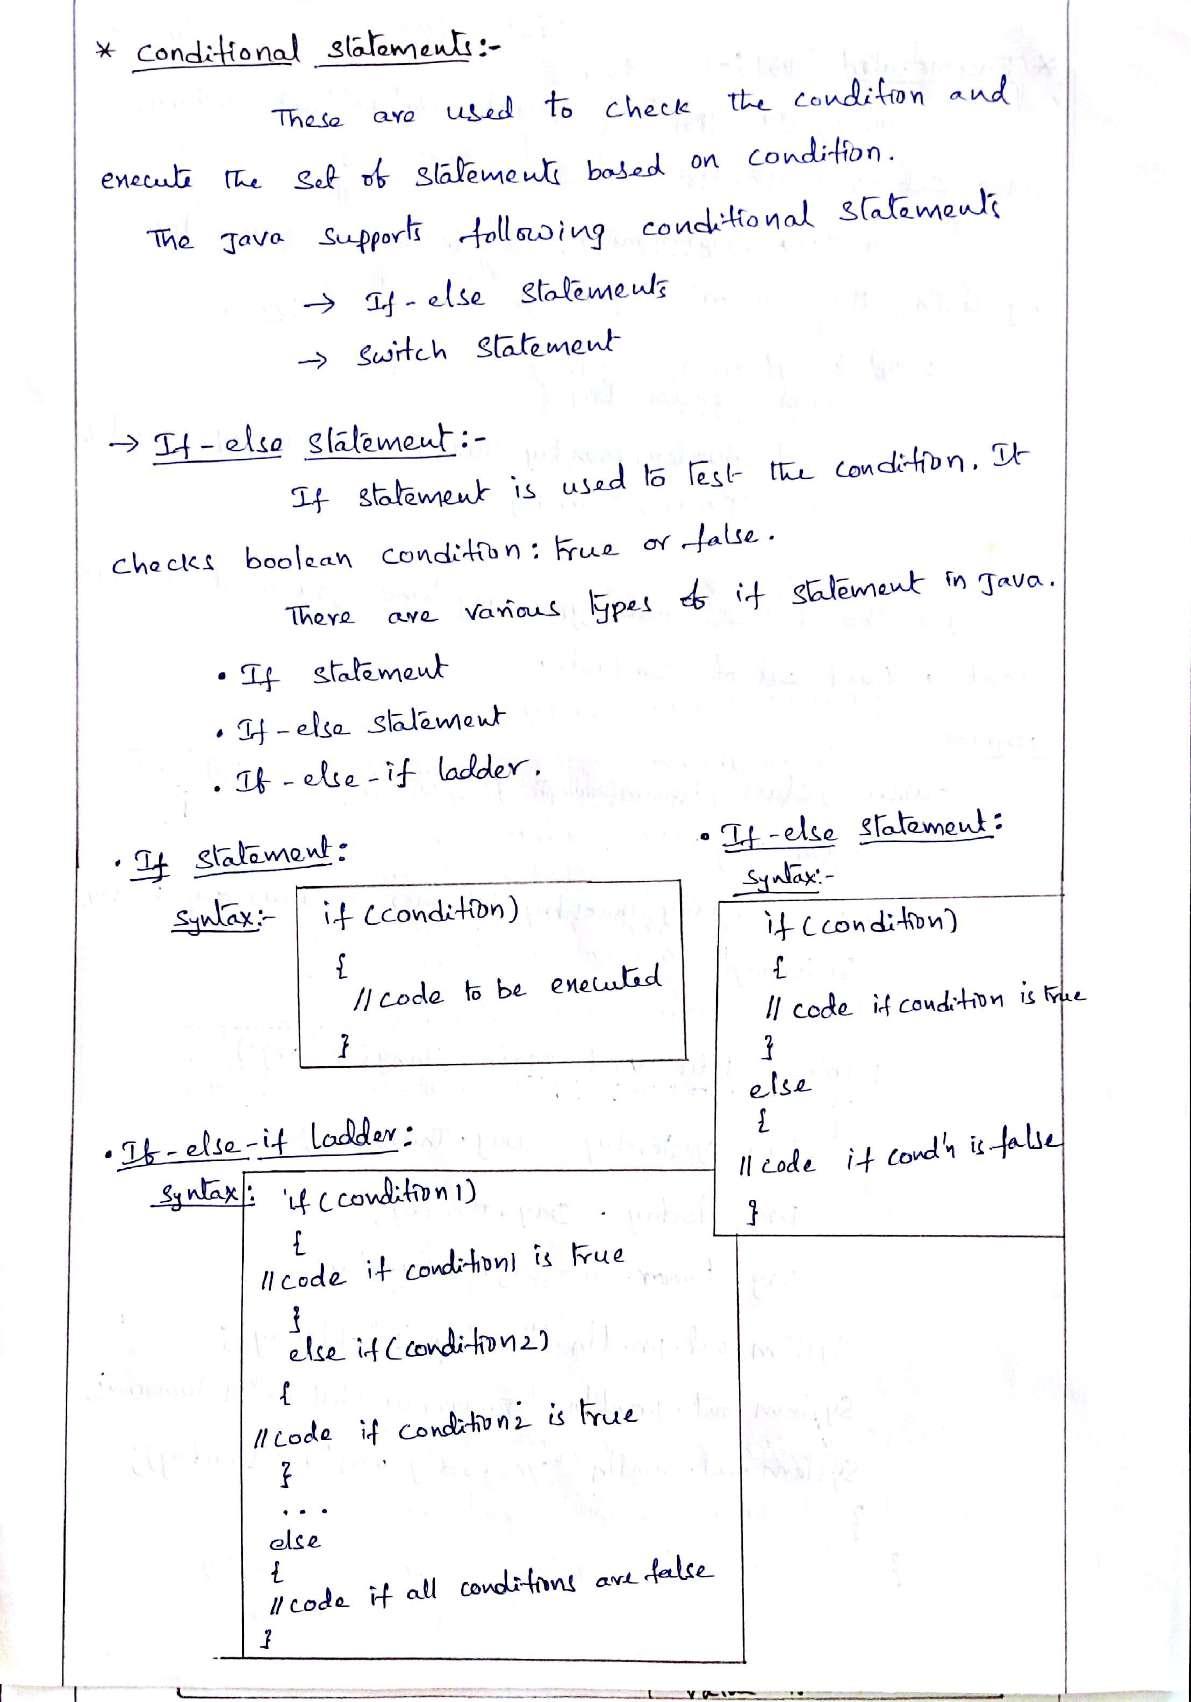 * Conditional Statements :-
These are used to check the condition and
execute the set of statements based on condition.
The Java supports following conditional statements
→ If - else statements
→ Switch statement
→ If - else statement :-
If statement is used to test the condition. It
checks boolean condition : true or false.
There are various types of if statement in Java.
• If statement
• If - else statement
• If - else - if ladder.
• If statement :
Syntax :-
if (condition)
{
// code to be executed
}
• If - else statement :
Syntax :-
if (condition)
{
// code if condition is true
}
else
{
// code if cond'n is false
}
• If - else - if ladder :
Syntax :
if (condition 1)
{
// code if condition1 is true
}
else if (condition 2)
{
// code if condition 2 is true
}
...
else
{
// code if all conditions are false
}